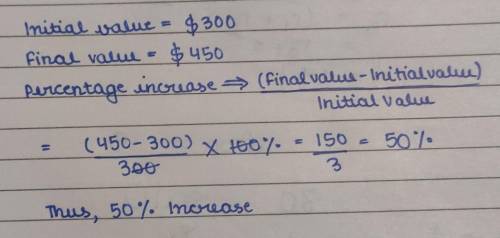 Initial value = $300
Final value = $450
Percentage increase ⇒ (Final value - Initial value) / Initial value
= (450-300) / 300 × 100% = 150 / 3 = 50%
Thus, 50% Increase